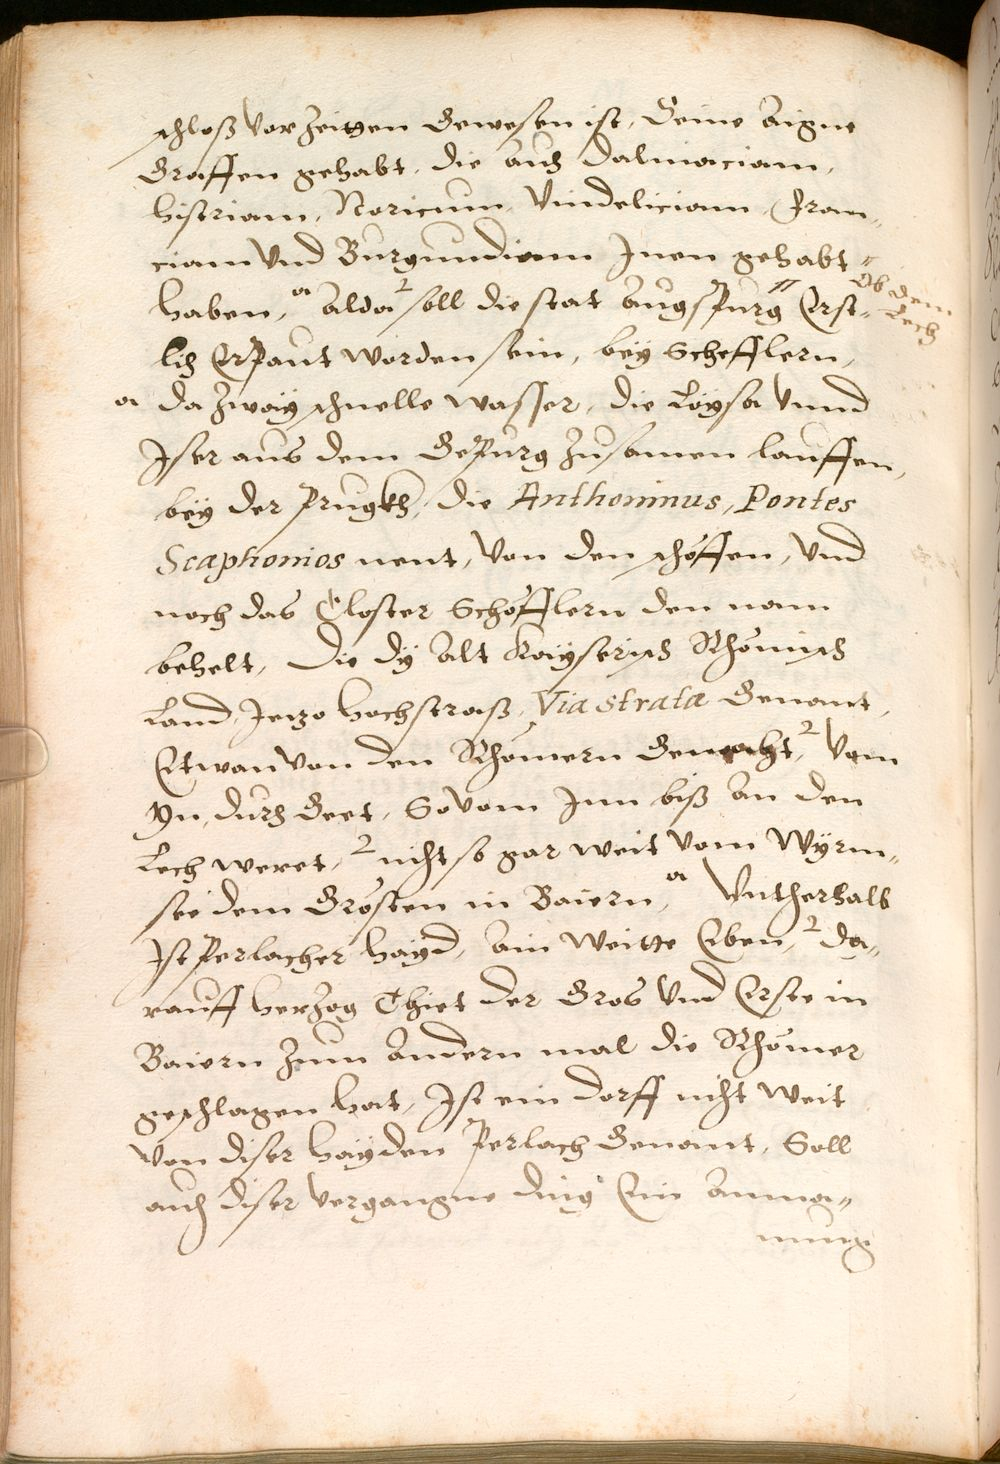 schloß vor Zeitten Gewesen ist, Seine Aigne
Graffen gehabt, die auch Dalmaciam,
Histriam, Noricum, Vindeliciam, Fran-,
ciam Vnd Burgundiam Inen gehabt
haben, a Alda 2 soll die stat Augspurg " Erst-,
" Ob dem
Lech
lich Erpaut worden sein, bey Schefflern,
a da Zway schnelle wasser, die Loysa Vnnd
Iser aus dem Gepurg Zusamen lauffen,
bey der Prugkh, die Anthoninus, Pontes
Scaphonios nent, Von den schöffen, Vnd
noch das Closter Schöfflern den nam
behelt, Die dy Alt Kayserisch Rhömisch
Land, Jetzo Hochstraß, Via strata Genant,
Etwan Von den Rhömern Gemacht, 2 Vom
Yn, durch Gert, So Vom Inn biß an den
Lech weret, 2 nicht so gar weit Vom Wyrm-,
see dem Grösten in Baiern, a Vntherhalb
Ist Perlacher Hayd, ain Weitte Eben, 2 da-,
rauff Herzog Thiet der Gros Vnd Erste in
Baiern Zum Andern mal die Rhömer
geschlagen hat, Ist ein dorff nicht weit
Von diser Hayden Perlach Genant, Soll
auch diser Vergangne ding Ein Anma-,
nung